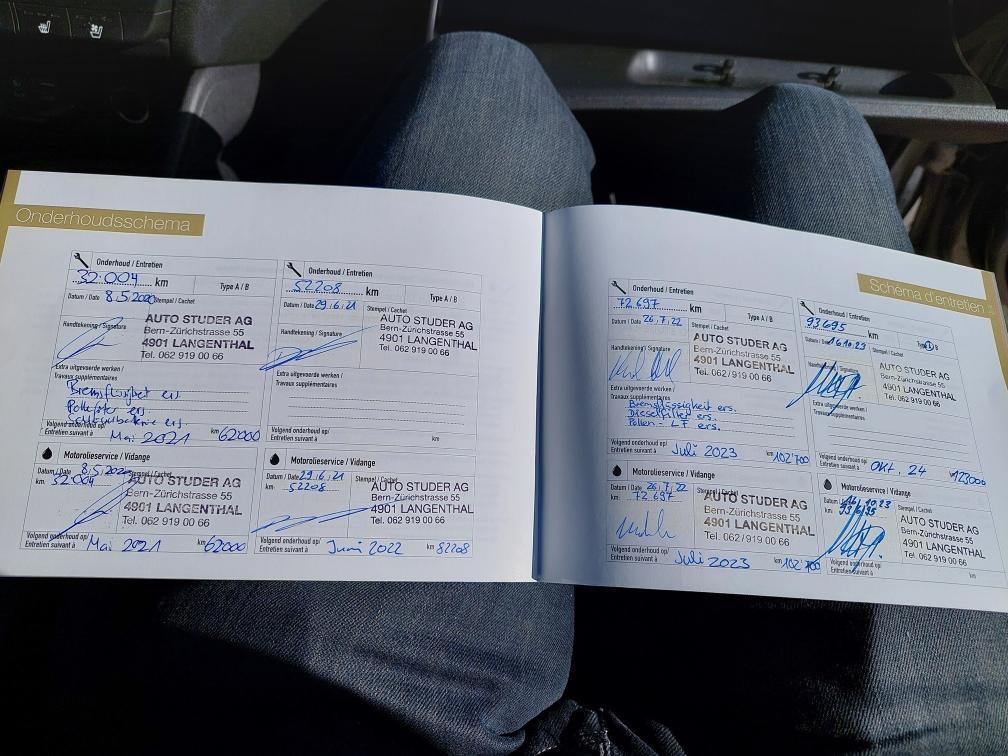 Onderhoudsschema
Onderhoud / Entretien
32.004 km
Type A / B
Datum / Date 8.5.2020 Stempel / Cachet
Handtekening / Signature
AUTO STUDER AG
Bern-Zürichstrasse 55
4901 LANGENTHAL
Tel. 062 919 00 66
Extra uitgevoerde werken /
Travaux supplémentaires
Bremsflüssigkeit ers.
Pollenfilter ers.
Volgend onderhoud op/
Entretien suivant à Mai 2021 km 62000
Motorolieservice / Vidange
Datum / Date 8.5.2020 Stempel / Cachet
km 32.004
AUTO STUDER AG
Bern-Zürichstrasse 55
4901 LANGENTHAL
Tel. 062 919 00 66
Volgend onderhoud op/
Entretien suivant à Mai 2021 km 62000
Onderhoud / Entretien
52208 km
Type A / B
Datum / Date 29.6.21 Stempel / Cachet
Handtekening / Signature
AUTO STUDER AG
Bern-Zürichstrasse 55
4901 LANGENTHAL
Tel. 062 919 00 66
Extra uitgevoerde werken /
Travaux supplémentaires
Volgend onderhoud op/
Entretien suivant à km
Motorolieservice / Vidange
Datum / Date 29.6.21 Stempel / Cachet
km 52208
AUTO STUDER AG
Bern-Zürichstrasse 55
4901 LANGENTHAL
Tel. 062 919 00 66
Volgend onderhoud op/
Entretien suivant à Juni 2022 km 82208
Schema d'entretien
Onderhoud / Entretien
72.697 km
Type A / B
Datum / Date 26.7.22 Stempel / Cachet
Handtekening / Signature
AUTO STUDER AG
Bern-Zürichstrasse 55
4901 LANGENTHAL
Tel. 062/919 00 66
Extra uitgevoerde werken /
Travaux supplémentaires
Bremsflüssigkeit ers.
Dieselfilter ers.
Pollen-LF ers.
Volgend onderhoud op/
Entretien suivant à Juli 2023 km 102'700
Motorolieservice / Vidange
Datum / Date 26.7.22 Stempel / Cachet
km 72.697
AUTO STUDER AG
Bern-Zürichstrasse 55
4901 LANGENTHAL
Tel. 062/919 00 66
Volgend onderhoud op/
Entretien suivant à Juli 2023 km 102'700
Onderhoud / Entretien
93695 km
Type A / B
Datum / Date 16.10.23 Stempel / Cachet
Handtekening / Signature
AUTO STUDER AG
Bern-Zürichstrasse 55
4901 LANGENTHAL
Tel. 062/919 00 66
Extra uitgevoerde werken /
Travaux supplémentaires
Volgend onderhoud op/
Entretien suivant à Okt. 24 km 123000
Motorolieservice / Vidange
Datum / Date 16.10.23 Stempel / Cachet
km 93695
AUTO STUDER AG
Bern-Zürichstrasse 55
4901 LANGENTHAL
Tel. 062/919 00 66
Volgend onderhoud op/
Entretien suivant à km